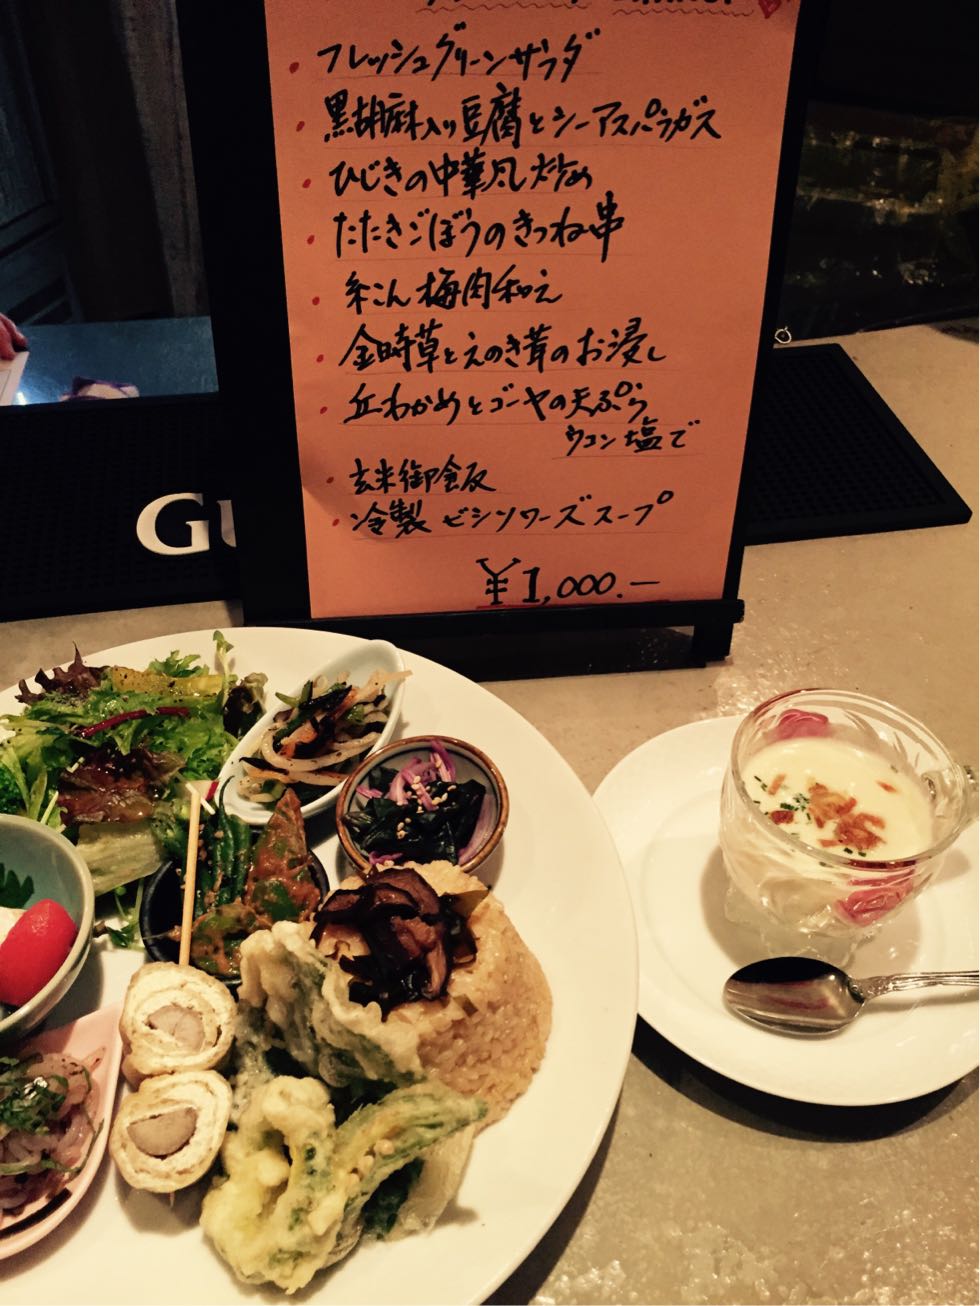 ・フレッシュグリーンサラダ
・黒胡麻入り豆腐とシーアスパラガス
・ひじきの中華風炒め
・たたきごぼうのきつね串
・糸こん梅肉和え
・金時草とえのき茸のお浸し
・丘わかめとゴーヤの天ぷら
ウコン塩で
・玄米御飯
・冷製ビシソワーズスープ
¥1,000.-
GU